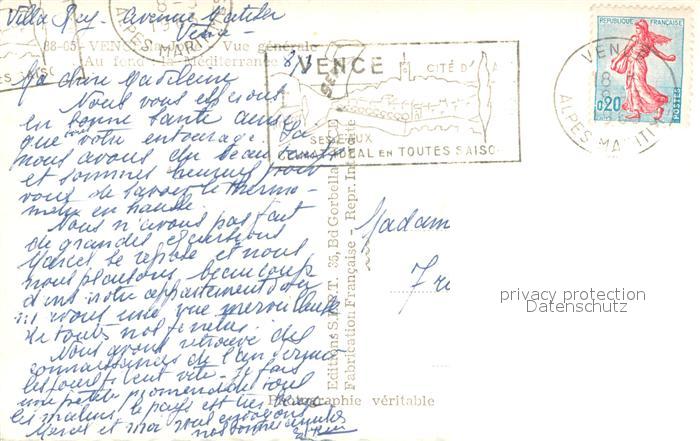 Villa Rey - Avenue
Vence -
88-65 - VENCE Vue générale
Au fond la Méditerranée
8/3
Ma chère Madeleine
Nous vous espérons
en bonne santé ainsi
que votre entourage.
nous avons du beau
et sommes heureux pour
vous de savoir le thermo-
mètre en hausse.
Nous n'avons pas fait
de grandes excursions
Marcel se repose et nous
nous plaisons beaucoup
dans notre appartement d'où
nous avons une vue merveilleuse
de toutes nos fenêtres.
Nous avons retrouvé des
connaissances de l'an dernier
les jours filent vite - Je fais
une petite promenade tous
les matins, le pays est très
Marcel et moi vous envoyons
nos bonnes amitiés
VENCE
CITÉ D'A
SES EAUX
IDÉAL EN TOUTES SAISO
REPUBLIQUE FRANÇAISE
0,20
POSTES
VENCE
18
ALPES MARITIMES
ALPES MAR
Editions S.E.P.T. 35, Bd Gorbella
Fabrication Française - Repr. Interdite
Photographie véritable
Madam
Fr
privacy protection
Datenschutz